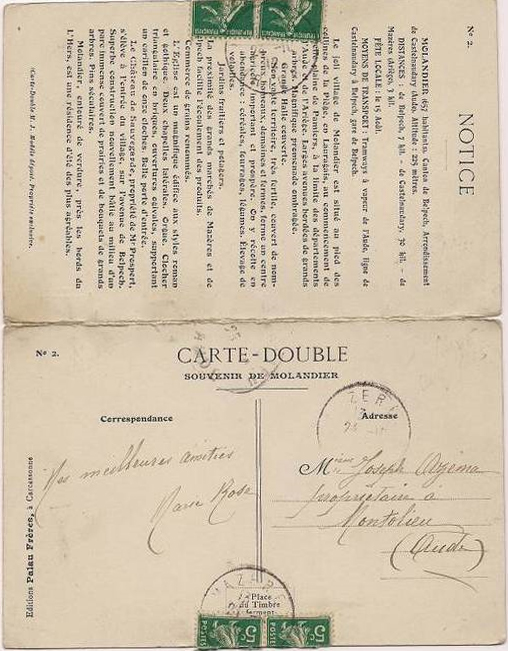 Nº 2.
NOTICE
MOLANDIER (657 habitants, Canton de Belpech, Arrondissement
de Castelnaudary (Aude). Altitude : 225 mètres.
DISTANCES : de Belpech, 7 kil. - de Castelnaudary, 30 kil. - de
Mazères (Ariège), kil.
FÊTE LOCALE : le 15 Août.
MOYENS DE TRANSPORT : Tramways à vapeur de l'Aude, ligne de
Castelnaudary à Belpech, gare de Belpech.
Le joli village de Molandier est situé au pied des
collines de la Piège, en Lauragais, au commencement de
plaine de Pamiers, à la limite des départements
l'Aude et de l'Ariège. Larges avenues bordées de grands
arbres. Magnifique promenade ombragée.
Grande Halle couverte.
Son vaste territoire, très fertile, couvert de nom-
breux hameaux, domaines et fermes, forme un centre
important et prospère. On y récolte en
abondance : céréales, fourrages, légumes. Élevage de
volailles.
Jardins fruitiers et potagers.
La proximité des grands marchés de Mazères et de
Belpech facilite l'écoulement des produits.
Commerce de grains renommés.
L'Église est un magnifique édifice aux styles roman
et gothique. Deux chapelles latérales. Orgue. Clocher
triangulaire en brique à ouvertures ogivales, supportant
un carillon de onze cloches. Belle porte d'entrée.
Le Château de Sauvegarde, propriété de Mr Prespert,
s'élève à l'entrée du village, sur l'avenue de Belpech.
Superbe construction nouvellement bâtie au milieu d'un
parc immense couvert de prairies et de bosquets de grands
arbres. Pins séculaires.
Molandier, entouré de verdure, près les bords du
l'Hers, est une résidence d'été des plus agréables.
(Carte-Double M. J. Modèle déposé. Propriété exclusive.
Nº 2.
CARTE-DOUBLE
SOUVENIR DE MOLANDIER
Correspondance
Adresse
Mes meilleures amitiés
Marie Rose
Mme Joseph Azéma
propriétaire à
Montolieu
(Aude)
Editions Palau Frères, à Carcassonne
MAZÈRE
Place
du Timbre
5c
POSTES
5c
POSTES